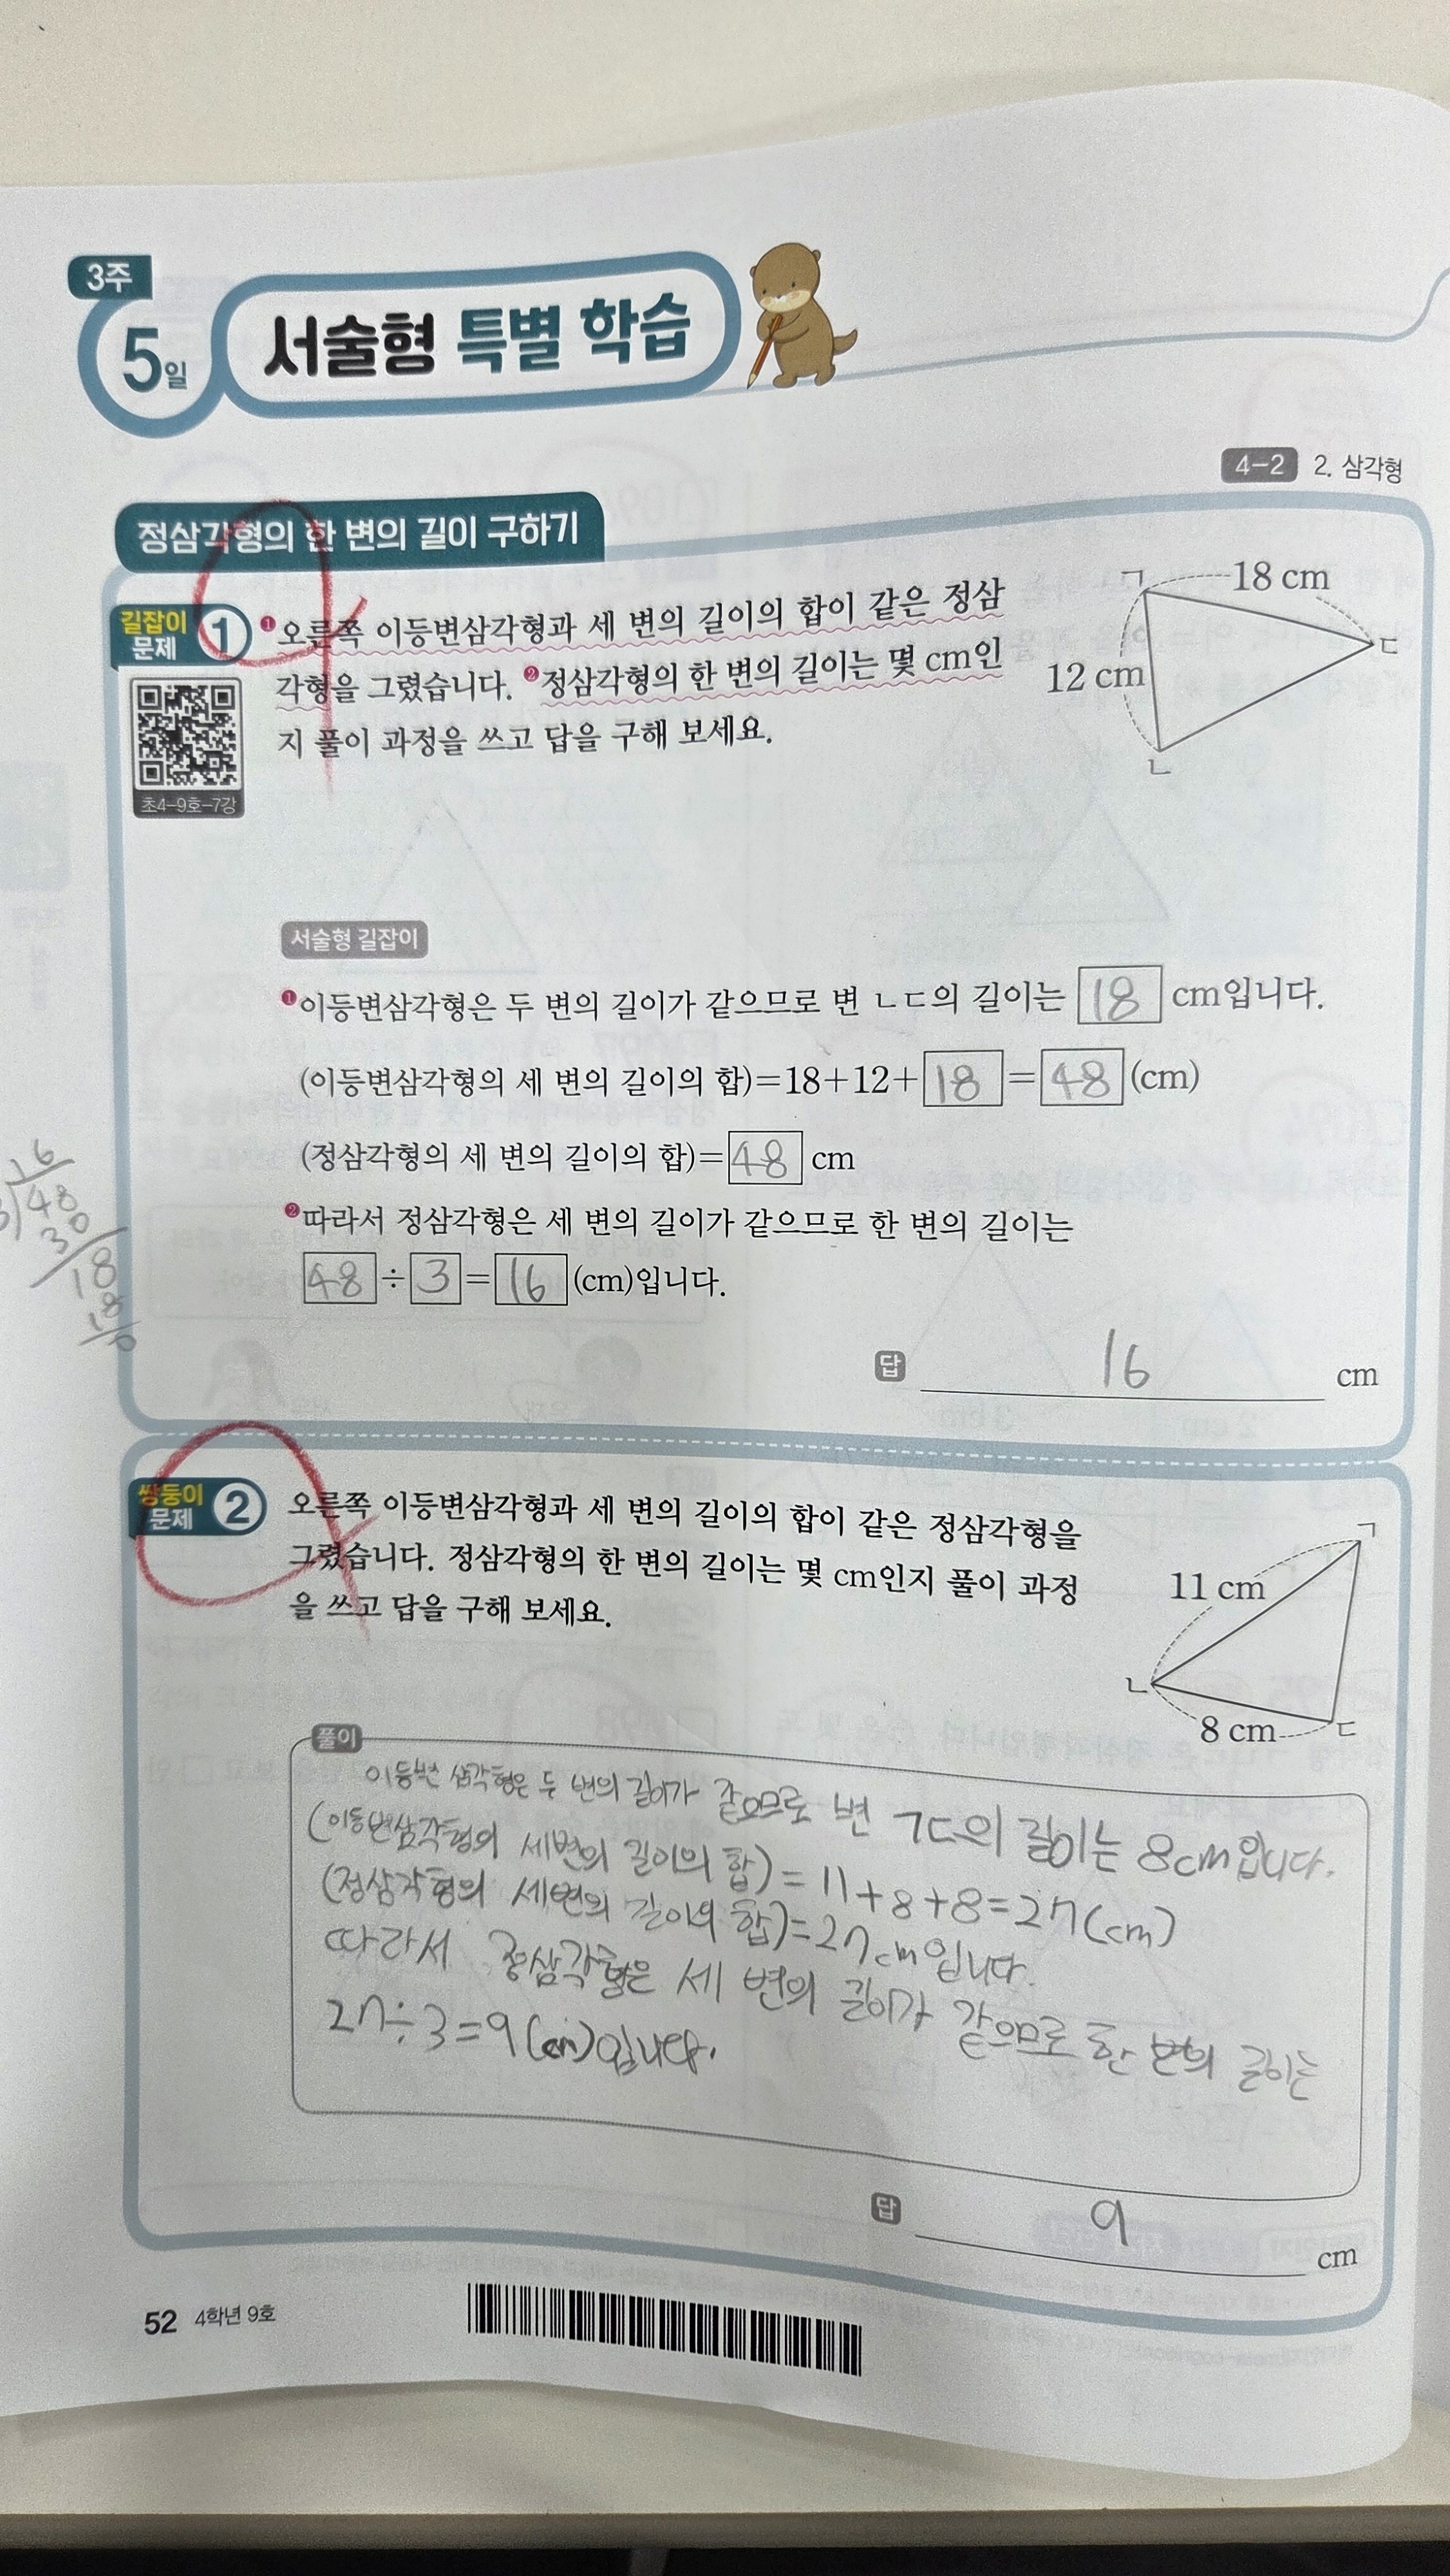 3주
5일 서술형 특별 학습
4-2 2. 삼각형
정삼각형의 한 변의 길이 구하기
길잡이 문제 1
❶오른쪽 이등변삼각형과 세 변의 길이의 합이 같은 정삼
각형을 그렸습니다. ❷정삼각형의 한 변의 길이는 몇 cm인
지 풀이 과정을 쓰고 답을 구해 보세요.
초4-9호-7강
ㄱ 18 cm
ㄷ
12 cm
ㄴ
서술형 길잡이
❶이등변삼각형은 두 변의 길이가 같으므로 변 ㄴㄷ의 길이는 18 cm입니다.
(이등변삼각형의 세 변의 길이의 합)=18+12+18=48(cm)
(정삼각형의 세 변의 길이의 합)=48 cm
❷따라서 정삼각형은 세 변의 길이가 같으므로 한 변의 길이는
48÷3=16(cm)입니다.
16
3)48
30
18
18
0
답 16 cm
쌍둥이 문제 2
오른쪽 이등변삼각형과 세 변의 길이의 합이 같은 정삼각형을
그렸습니다. 정삼각형의 한 변의 길이는 몇 cm인지 풀이 과정
을 쓰고 답을 구해 보세요.
ㄱ
11 cm
ㄴ
8 cm ㄷ
풀이
이등변 삼각형은 두 변의 길이가 같으므로 변 ㄱㄷ의 길이는 8cm입니다.
(이등변삼각형의 세변의 길이의 합)=11+8+8=27(cm)
(정삼각형의 세변의 길이의 합)=27cm입니다.
따라서 정삼각형은 세 변의 길이가 같으므로 한 변의 길이는
27÷3=9(cm)입니다.
답 9 cm
52 4학년 9호